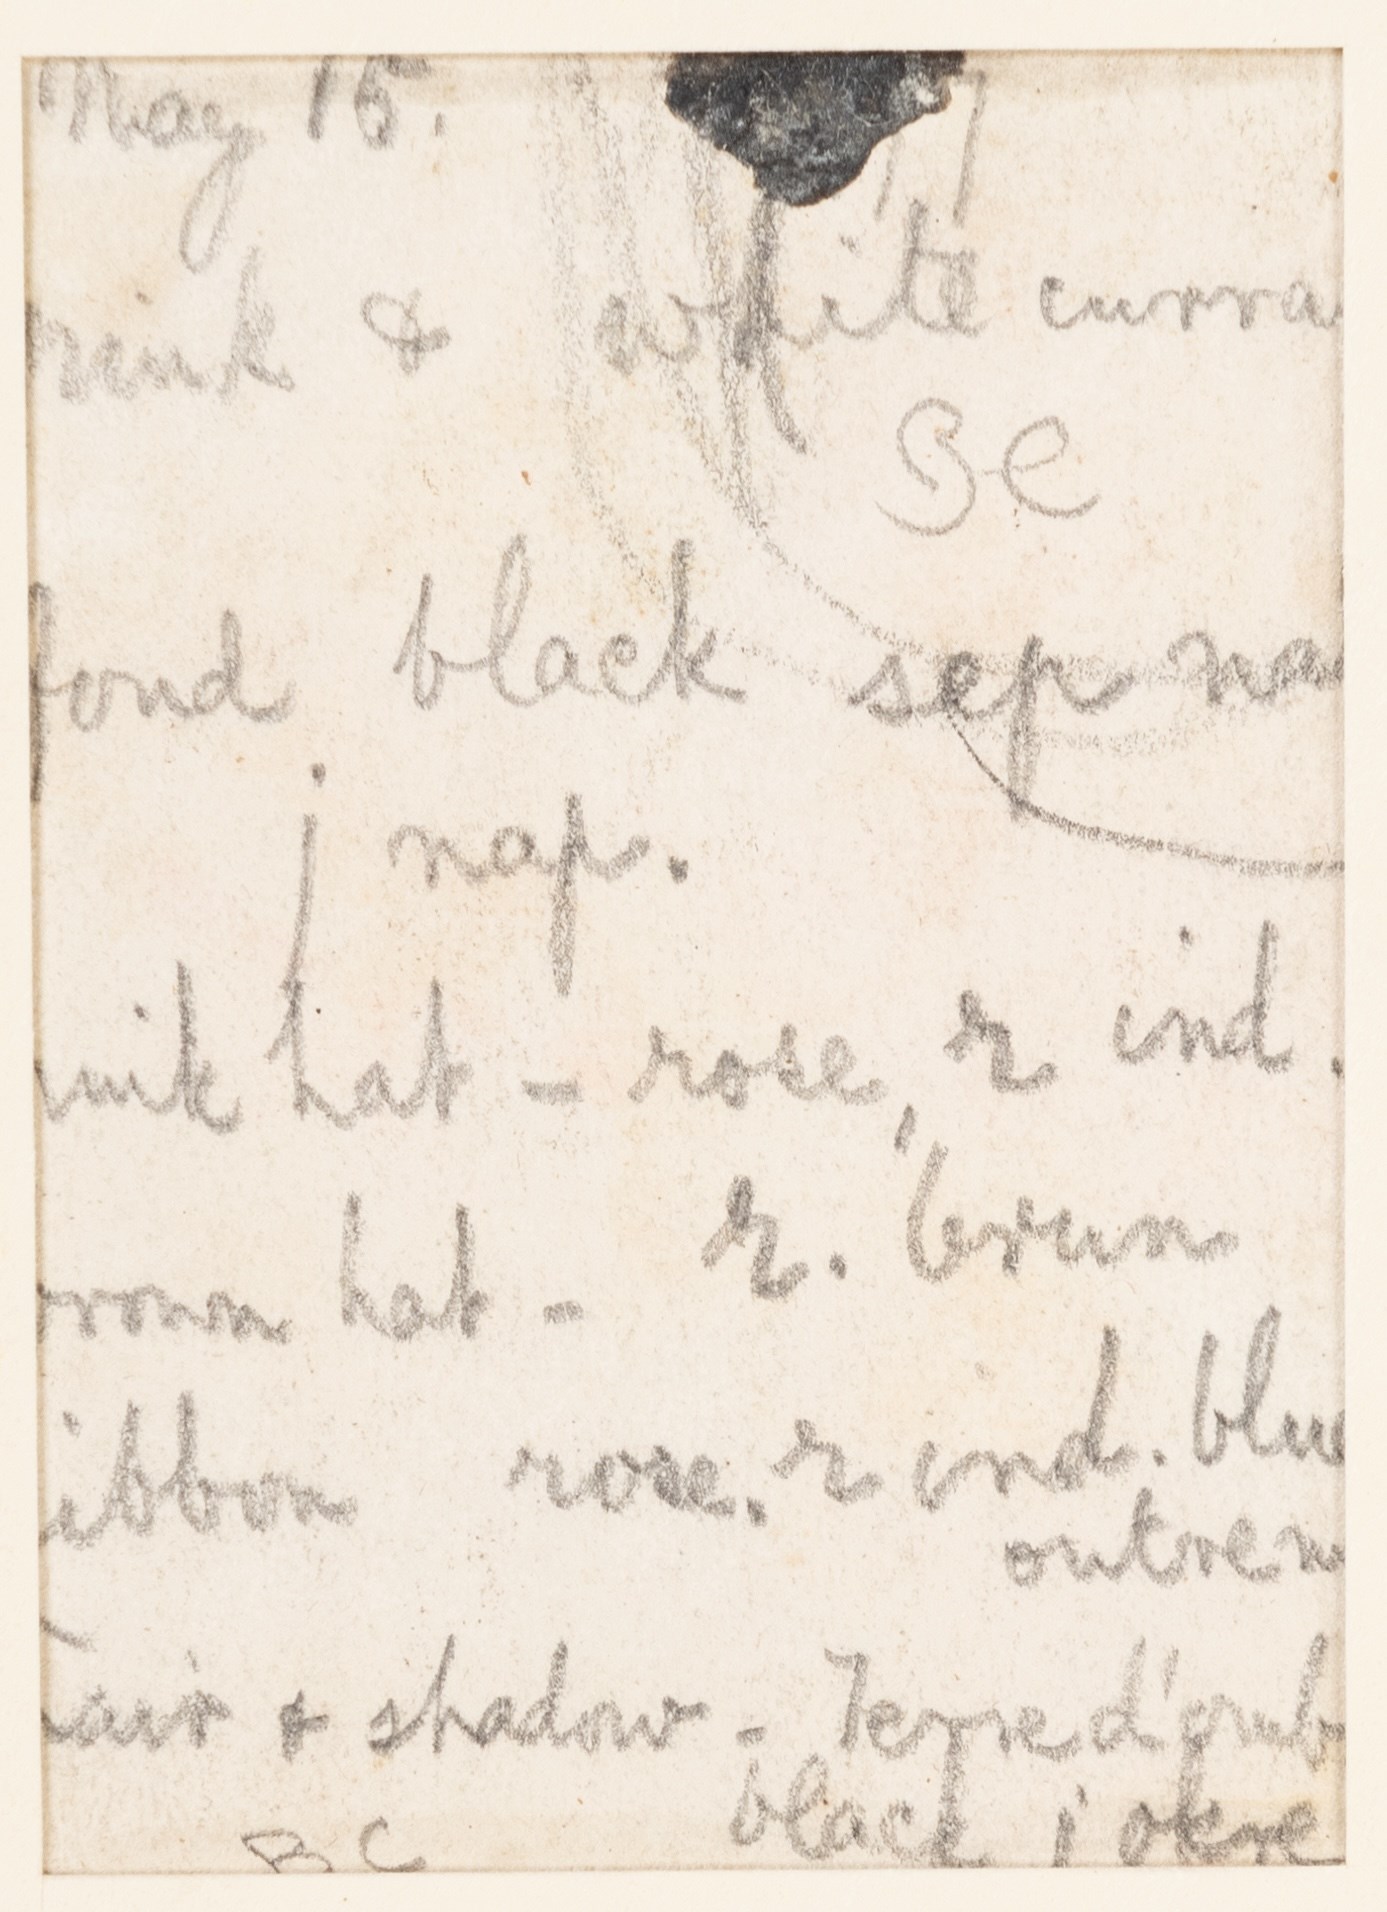 May 15.
& white curra
BC
fond black sep na
j nap.
hat - rose, r ind.
rown hat - r. brun
ibbon rose. r ind. blue
outrem
air & shadow - Terre d'omb
black j okre
BC